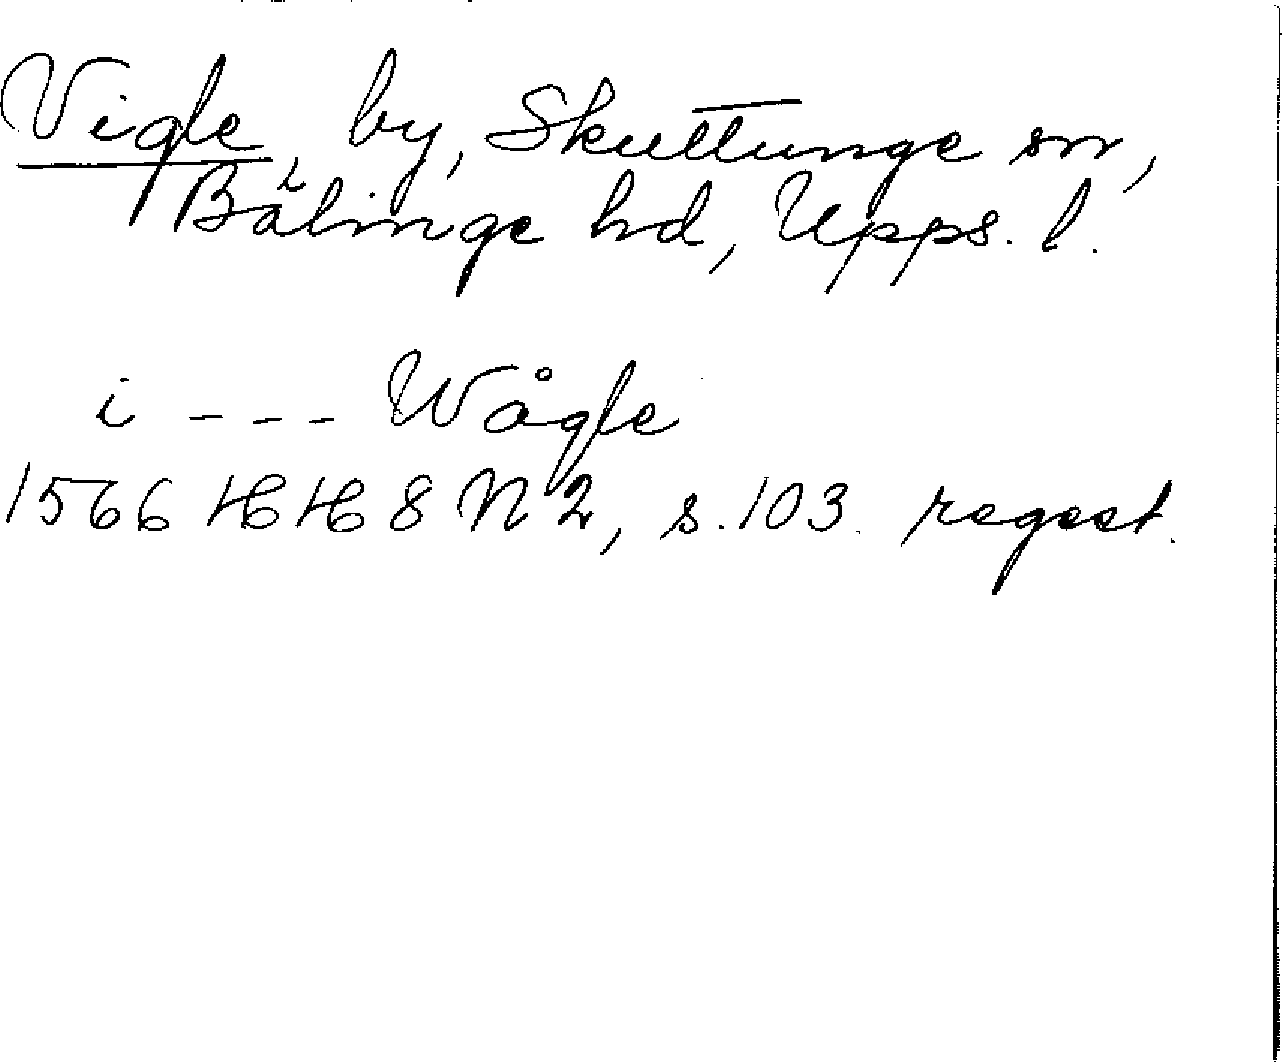 Vigle, by, Skuttunge sn,
Bälinge hd, Upps. l.
i - - - Wågle
1566 HH 8 N 2, s. 103. regest.